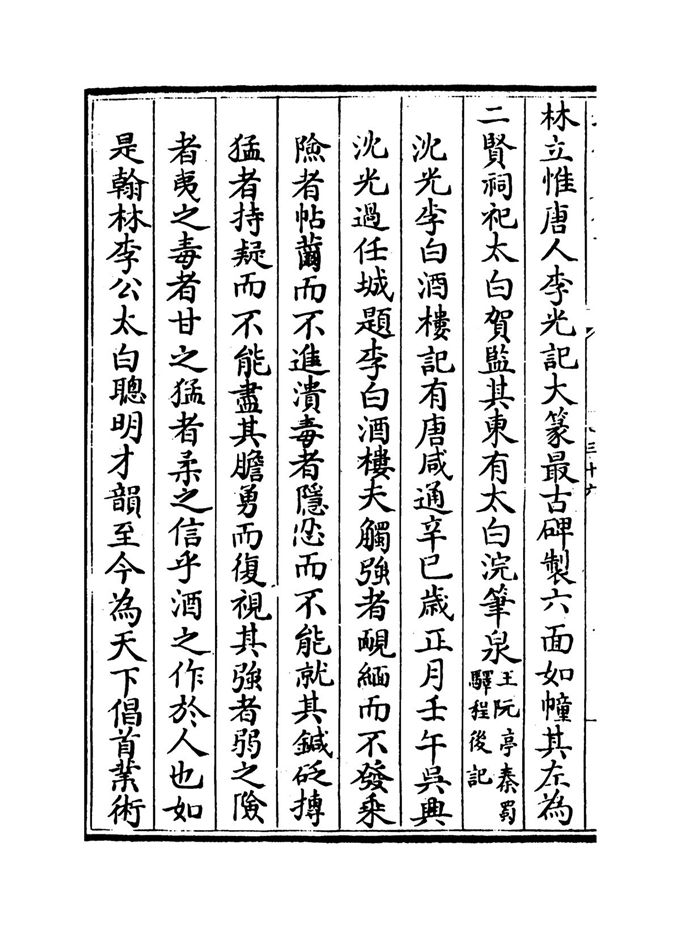 林立惟唐人李光記大篆最古碑製六面如幢其左為
二賢祠祀太白賀監其東有太白浣筆泉王阮亭秦蜀
驛程後記
沈光李白酒樓記有唐咸通辛巳歲正月壬午吳興
沈光過任城題李白酒樓夫觸強者靦緬而不發乘
險者帖薾而不進潰毒者隱忍而不能就其鍼砭摶
猛者持疑而不能盡其膽勇而復視其強者弱之險
者夷之毒者甘之猛者柔之信乎酒之作於人也如
是翰林李公太白聰明才韻至今為天下倡首業術